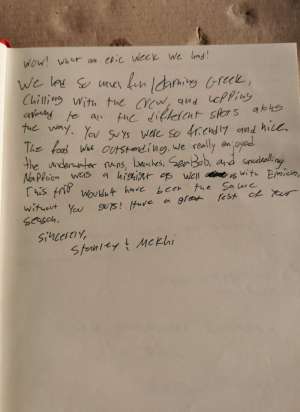 Wow! What an epic week we had!
We had so much fun learning Greek,
Chilling with the crew, and hopping
around to all the different spots along
the way. You guys were so friendly and nice.
The food was outstanding. We really enjoyed
the underwater runs, beaches, SeaBob, and snorkelling
Nafplion was a highlight as well as with
This trip wouldn't have been the same
without you guys! Have a great rest of your
season.
Sincerely,
Stanley & Mekhi